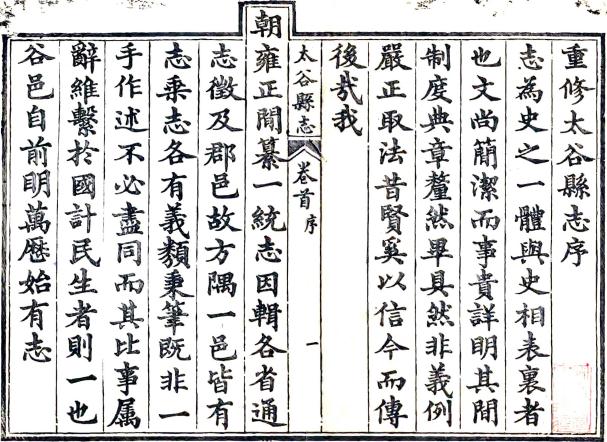 重修太谷縣志序
志為史之一體與史相表裏者
也文尚簡潔而事貴詳明其間
制度典章釐然畢具然非義例
嚴正取法昔賢奚以信今而傳
後哉我
太谷縣志 卷首 序 一
朝雍正間纂一統志因輯各省通
志徵及郡邑故方隅一邑皆有
志乘志各有義類秉筆既非一
手作述不必盡同而其比事属
辭維繫於國計民生者則一也
谷邑自前明萬歷始有志